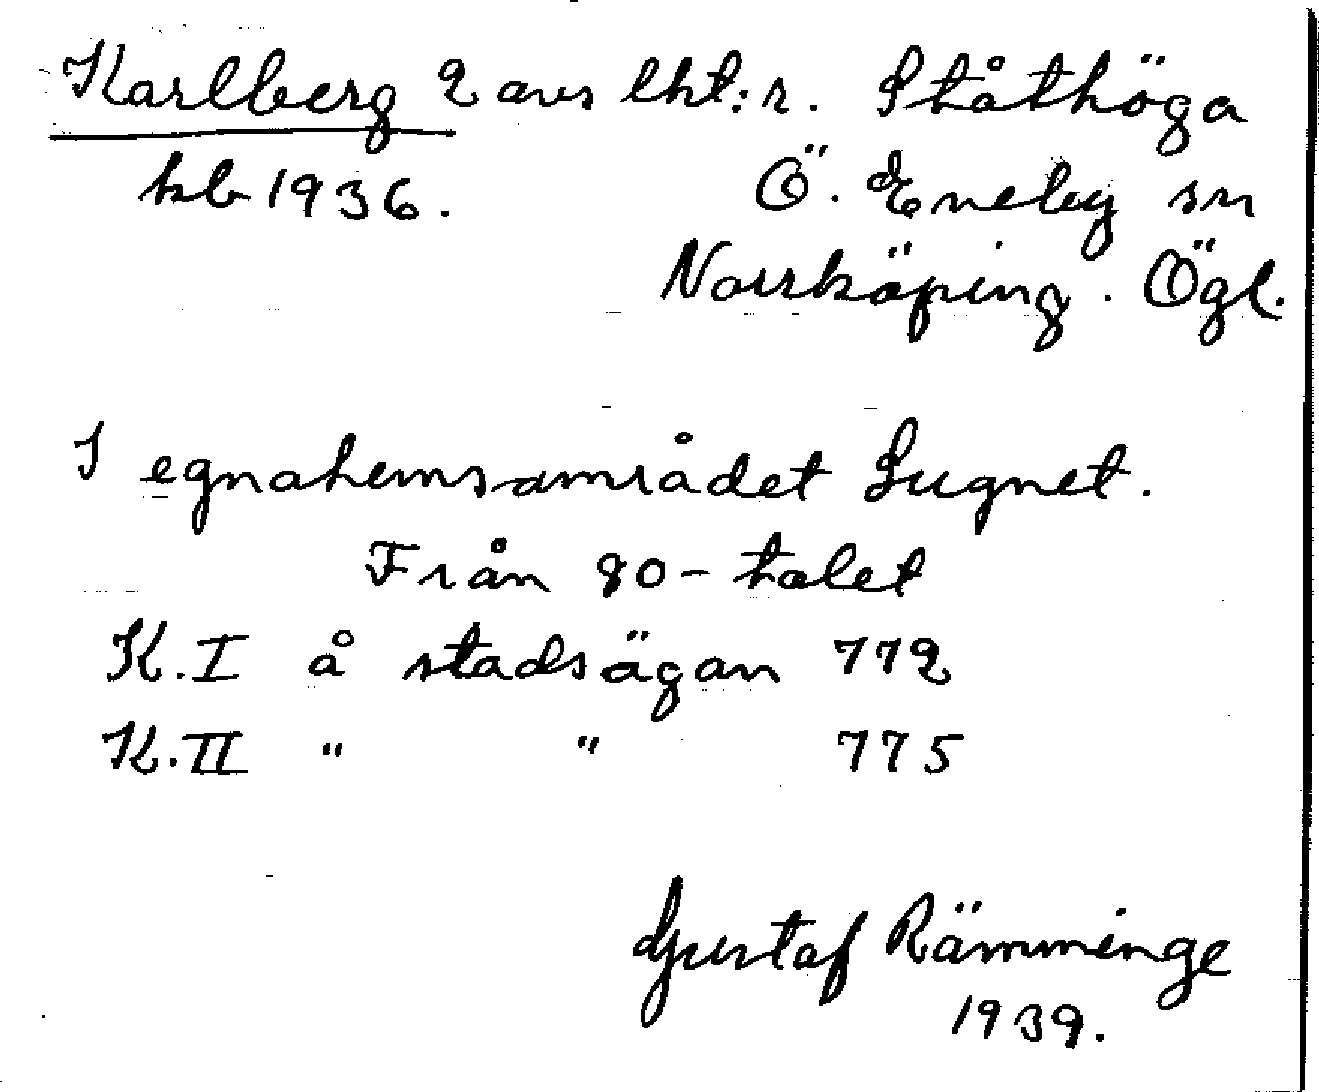 Karlberg 2 avs lht:r. Ståthöga
kb 1936. Ö. Eneby sn
Norrköping. Ögl.
I egnahemsområdet Lugnet.
Från 80-talet
K.I å stadsägan 772
K.II " " 775
Gustaf Rämminge
1939.